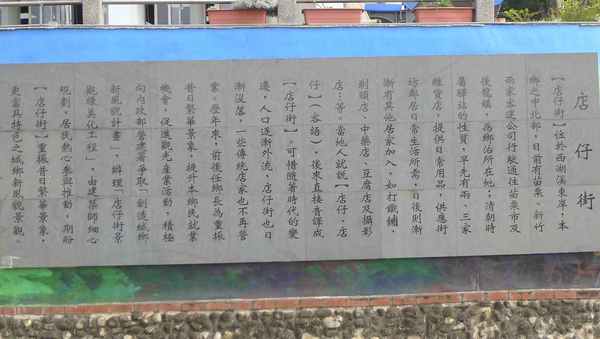 店仔街
【店仔街】位於西湖溪東岸,本
鄉之中北部,目前有苗栗、新竹
兩家客運公司行駛通往苗栗市及
後龍鎮,為鄉治所在地。清朝時
屬驛站的性質,早先有兩、三家
雜貨店,提供日常用品,供應街
坊鄰居日常生活所需,日後則漸
漸有其他居家加入,如打鐵鋪、
剃頭店、中藥店、豆腐店及攝影
店…等。當地人就說【店仔、店
仔】(客語),後來直接音譯成
【店仔街】。可惜隨著時代的變
遷,人口逐漸外流,店仔街也日
漸沒落,一些傳統店家也不再營
業。歷年來,前後任鄉長為重振
昔日繁華景象,提升本鄉民就業
機會,促進觀光產業活動,積極
向內政部營建署爭取「創造城鄉
新風貌計畫」,辦理「店仔街景
觀綠美化工程」,由建築師細心
規劃,居民熱心參與推動,期盼
【店仔街】重振昔日繁華景象,
更富具特色之城鄉新風貌景觀。